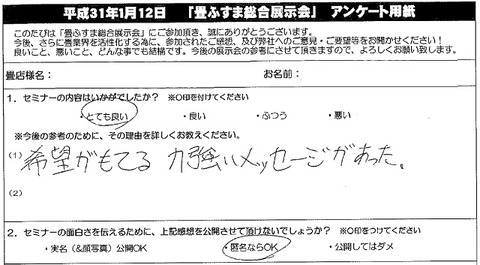 平成31年1月12日 「畳ふすま総合展示会」 アンケート用紙
このたびは「畳ふすま総合展示会」にご参加頂き、誠にありがとうございます。
今後、さらに畳業界を活性化する為に、参加されたご感想、及び弊社へのご意見・ご要望等をお聞かせください！
良いこと、悪いこと、どんな事でも結構です。今後の展示会の参考にさせて頂きますので、よろしくお願い致します。
畳店様名： お名前：
1．セミナーの内容はいかがでしたか？ ※○印を付けてください
・とても良い ・良い ・ふつう ・悪い
※今後の参考のために、その理由を詳しくお教えください。
(1) 希望がもてる 力強いメッセージがあった。
(2)
2．セミナーの面白さを伝えるために、上記感想を公開させて頂けないでしょうか？ ※○印をつけてください
・実名（&顔写真）公開OK ・匿名ならOK ・公開してはダメ